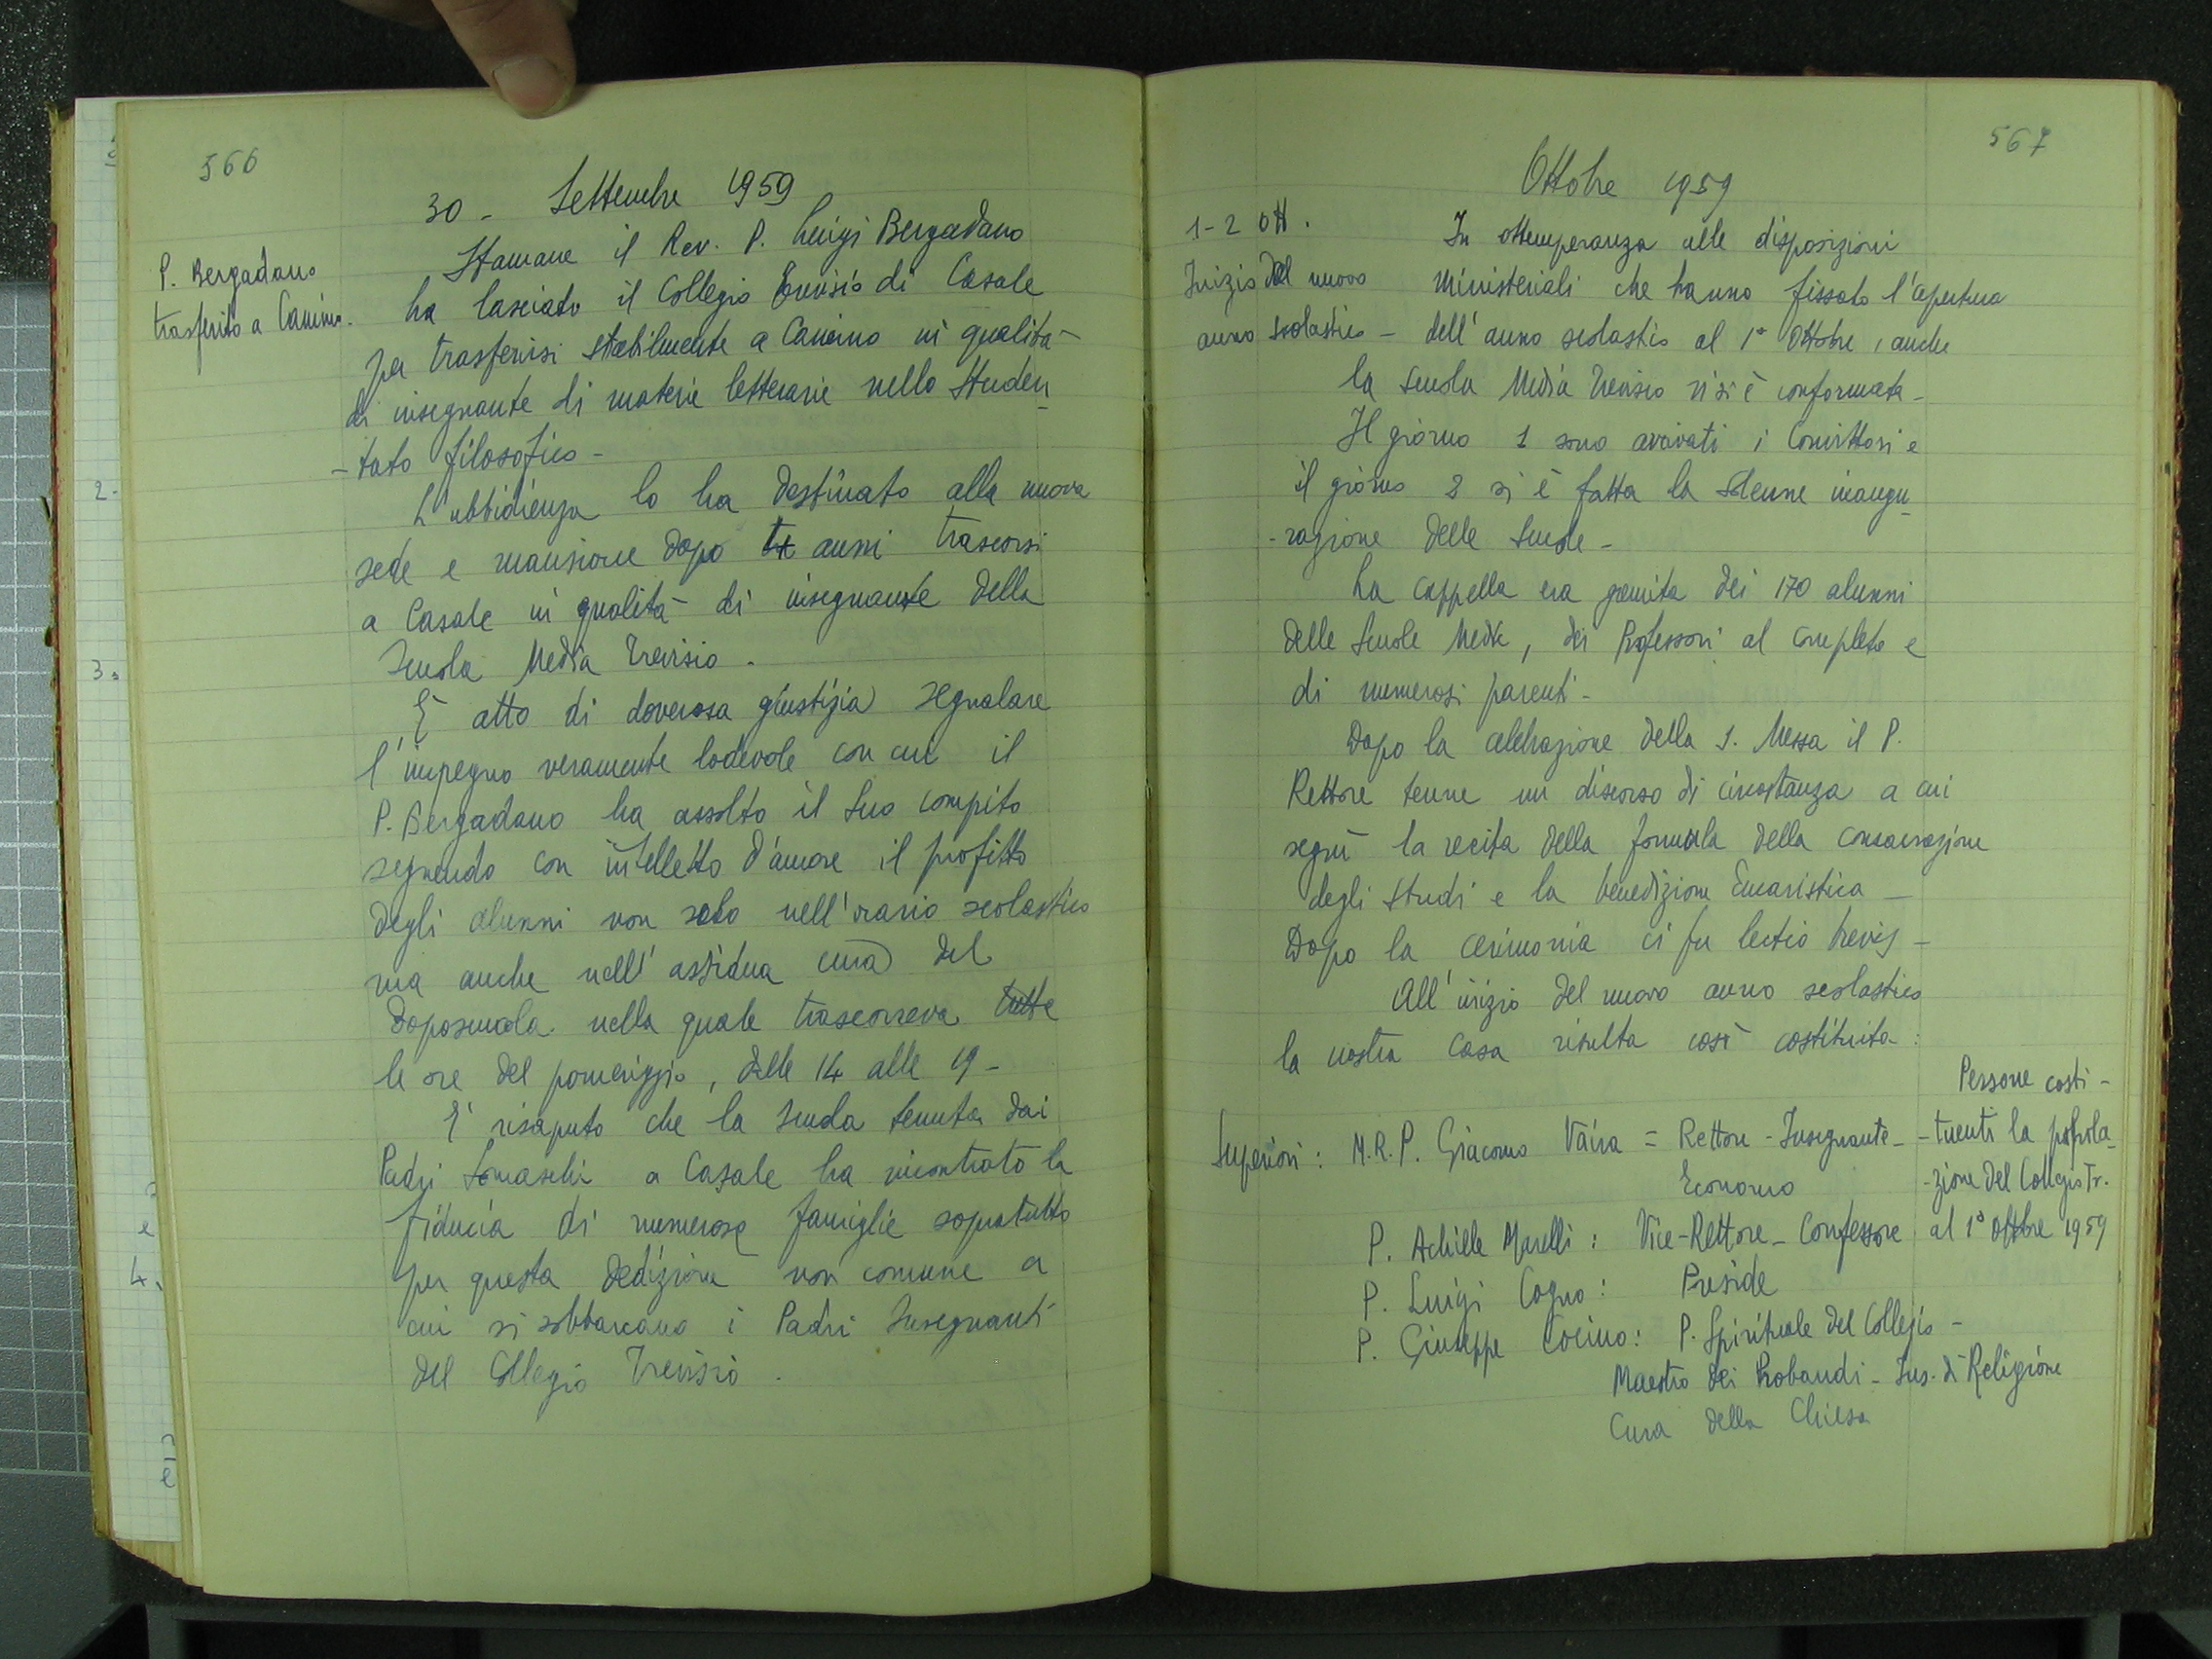 566
30 - Settembre 1959
P. Bergadano
trasferito a Camino.
Stamane il Rev. P. Luigi Bergadano
ha lasciato il Collegio Trevisio di Casale
per trasferirsi stabilmente a Camino in qualità
di insegnante di materie letterarie nello Studen
-tato filosofico -
L'ubbidienza lo ha destinato alla nuova
sede e mansione dopo tre anni trascorsi
a Casale in qualità di insegnante della
Scuola Media Trevisio.
È atto di doverosa giustizia segnalare
l'impegno veramente lodevole con cui il
P. Bergadano ha assolto il suo compito
seguendo con intelletto d'amore il profitto
degli alunni non solo nell'orario scolastico
ma anche nell'assidua cura del
doposcuola nella quale trascorreva tutte
le ore del pomeriggio, dalle 14 alle 19 -
E' risaputo che la Scuola tenuta dai
Padri Somaschi a Casale ha incontrato la
fiducia di numerose famiglie sopratutto
per questa dedizione non comune a
cui si sobbarcano i Padri Insegnanti
del Collegio Trevisio.
2.
3.
e
4.
567
Ottobre 1959
1-2 Ott.
Inizio del nuovo
anno scolastico -
In ottemperanza alle disposizioni
Ministeriali che hanno fissato l'apertura
dell'anno scolastico al 1° Ottobre, anche
la Scuola Media Trevisio vi si è conformata -
Il giorno 1 sono arrivati i Convittori e
il giorno 2 si è fatta la solenne inaugu
-razione delle Scuole -
La Cappella era gremita dei 170 alunni
delle Scuole Medie, dei Professori al completo e
di numerosi parenti -
Dopo la celebrazione della S. Messa il P.
Rettore tenne un discorso di circostanza a cui
seguì la recita della formula della consacrazione
degli studi e la benedizione Eucaristica -
Dopo la cerimonia ci fu lectio brevis -
All'inizio del nuovo anno scolastico
la nostra Casa risulta così costituita:
Persone costi-
-tuenti la popola
-zione del Collegio Tr.
al 1° Ottobre 1959
Superiori: M.R.P. Giacomo Vaira = Rettore - Insegnante -
Economo
P. Achille Marelli: Vice-Rettore - Confessore
P. Luigi Cogno: Preside
P. Giuseppe Cocino: P. Spirituale del Collegio -
Maestro dei Probandi - Ins. di Religione
Cura della Chiesa